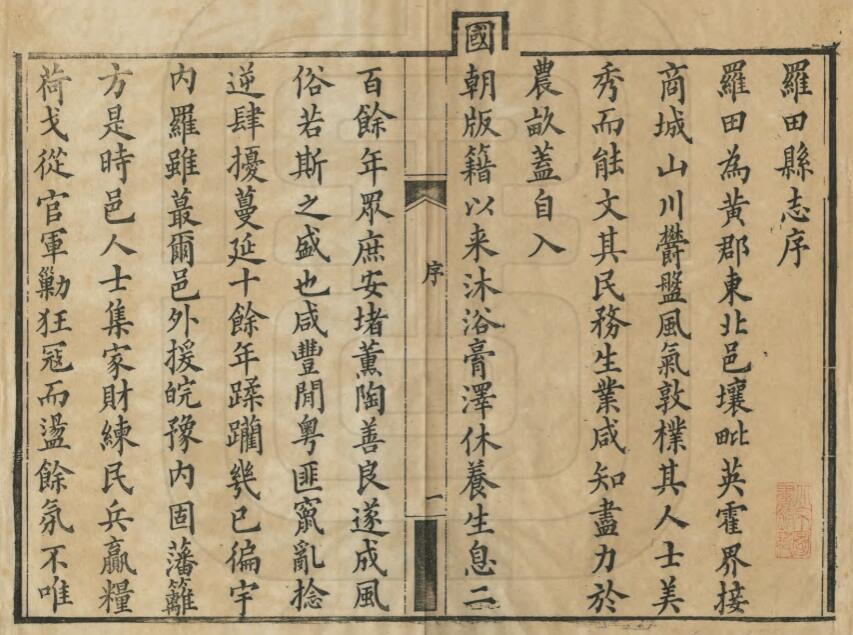 羅田縣志序
羅田為黃郡東北邑壤毗英霍界接
商城山川欝盤風氣敦樸其人士美
秀而能文其民務生業咸知盡力於
農畝蓋自入
國朝版籍以来沐浴膏澤休養生息二
序
一
百餘年眾庶安堵薰陶善良遂成風
俗若斯之盛也咸豐閒粵匪竄亂捻
逆肆擾蔓延十餘年蹂躪幾已徧宇
內羅雖蕞爾邑外援皖豫內固藩籬
方是時邑人士集家財練民兵贏糧
荷戈從官軍勦狂冦而盪餘氛不唯